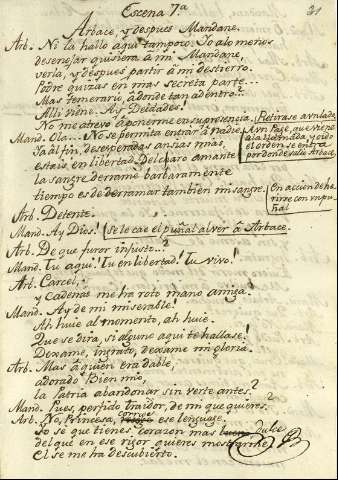 Escena 7.ª 21
Arbace, y despues Mandane.
Arb. Ni la hallo aqui tampoco: Yo alo menos
desenojar quisiera à mi Mandane,
verla, y despues partir á mi destierro.
Podrè quizás en mas secreta parte...
Mas temerario, àdonde tan adentro?..
Alli viene: Ay Deidades!
No me atrevo à ponerme en su presencia. Retirase a un lado.
Mand. Ola... No se permita entrar à nadie. A un Page, que viene
Ya al fin, desesperadas ansias mias, a la llamada, y oido
estais en libertad. Del caro amante el orden se entra
la sangre derramè barbaramente por donde salio Arbace.
tiempo es de derramar tambien mi sangre. En accion de he-
rirse con un pu-
ñal
Arb. Detente.
Mand. Ay Dios! Se le cae el puñal al ver â Arbace.
Arb. De que furor injusto...?
Mand. Tu aqui! Tu en libertad! Tu vivo!
Arb. Carcel,
y cadenas me ha roto mano amiga.
Mand. Ay de mi miserable!
Ah huie al momento, ah huie.
Que se dira, si alguno aqui te hallase!
Dexame, ingrato, dexame mi gloria.
Arb. Mas à quien era dable,
adorado Bien mio,
la Patria abandonar sin verte antes?
Mand. Pues, perfido traidor, de mi que quieres?
Arb. No, Princesa, corrige ese lenguage,
Yo sè que tienes corazon mas dulce
del què en ese rigor quieres mostrarme
el se me ha descubierto.